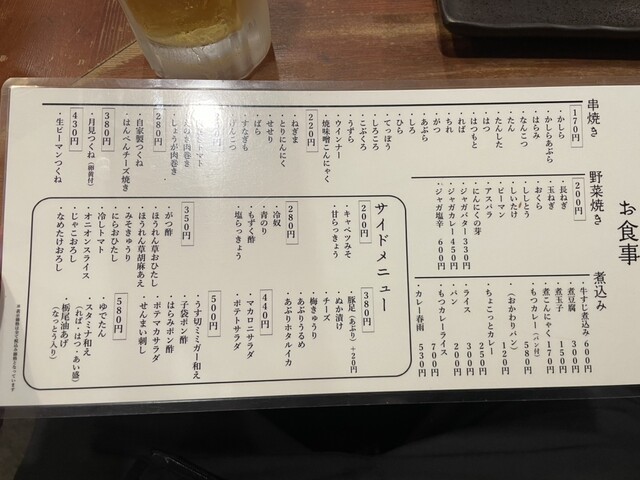 お食事
串焼き
170円
・かしら
・かしらあぶら
・はらみ
・なんこつ
・たん
・たんした
・はつ
・はつもと
・れば
・ちれ
・がつ
・あぶら
・しろ
・ひら
・てっぽう
・しろころ
・こぶくろ
・うずら
・ウインナー
・焼味噌こんにゃく
220円
・ねぎま
・とりにんにく
・せせり
・ぼら
・すなぎも
・しょうが肉巻き
280円
・自家製つくね
・はんぺんチーズ焼き
380円
・月見つくね（卵黄付）
430円
・生ピーマンつくね
野菜焼き
200円
・長ねぎ
・玉ねぎ
・おくら
・ししとう
・しいたけ
・ピーマン
・アスパラ
・にんにくの芽
・ジャガバター 330円
・ジャガカレー 450円
・ジャガ塩辛 600円
煮込み
・牛すじ煮込み 600円
・煮豆腐 300円
・煮玉子 150円
・煮こんにゃく 170円
・もつカレー（パン付） 580円
（おかわりパン） 120円
・ちょこっとカレー 250円
・ライス 300円
・パン 200円
・もつカレーライス 700円
・カレー春雨 530円
サイドメニュー
200円
・キャベツみそ
・甘らっきょう
280円
・冷奴
・青のり
・もずく酢
・塩らっきょう
350円
・がつ酢
・ほうれん草おひたし
・ほうれん草胡麻あえ
・みそきゅうり
・にらおひたし
・冷しトマト
・オニオンスライス
・じゃこおろし
・なめたけおろし
380円
・豚足（あぶり）+20円
・ぬか漬け
・チーズ
・梅きゅうり
・あぶりうるめ
・あぶりホタルイカ
440円
・マカロニサラダ
・ポテトサラダ
500円
・うす切ミミガー和え
・子袋ポン酢
・はらみポン酢
・ポテマカサラダ
・せんまい刺し
580円
・ゆでたん
・スタミナ和え
（れば・はつ・あい盛）
・栃尾油あげ
（なっとう入り）